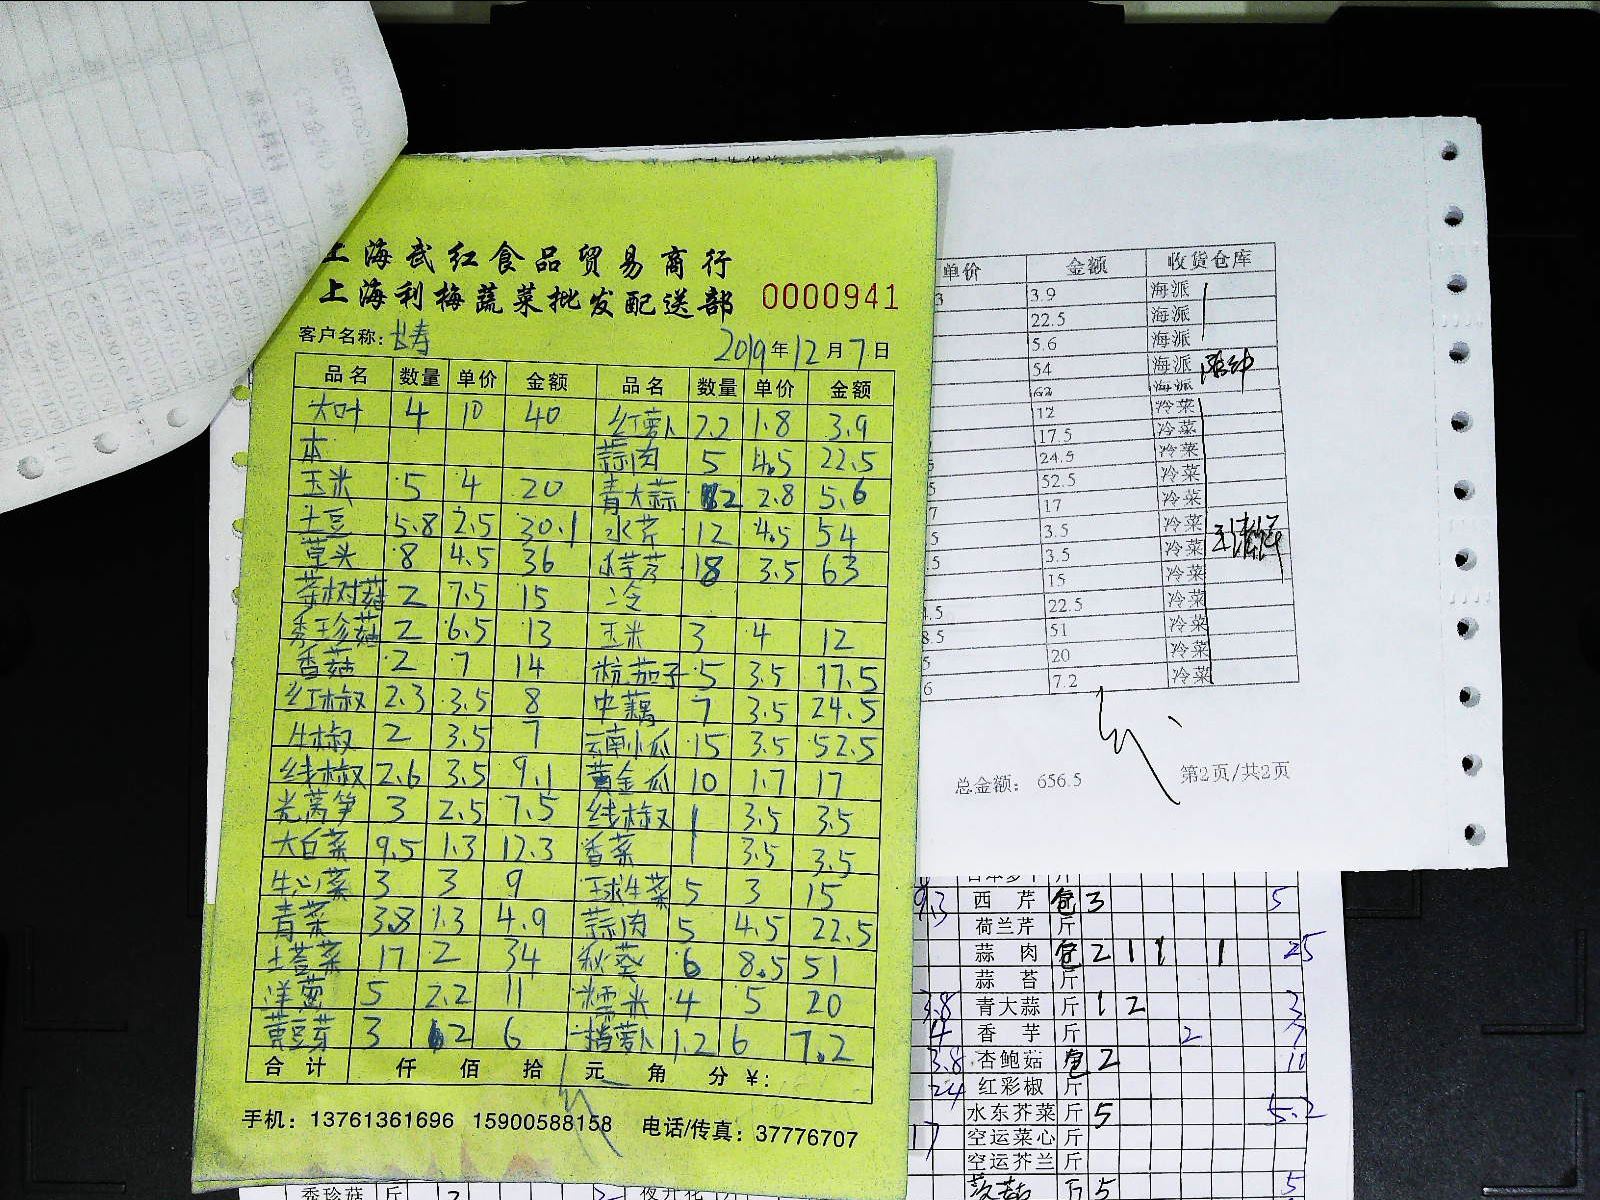 上海武红食品贸易商行
上海利梅蔬菜批发配送部 0000941
客户名称: 长寿 2019年12月7日
品名 数量 单价 金额 品名 数量 单价 金额
大叶 4 10 40 红萝卜 2.2 1.8 3.9
本 蒜肉 5 4.5 22.5
玉米 5 4 20 青大蒜 2 2.8 5.6
土豆 5.8 2.5 30.1 水芹 12 4.5 54
草头 8 4.5 36 18 3.5 63
茶树菇 2 7.5 15 冷
秀珍菇 2 6.5 13 玉米 3 4 12
香菇 2 7 14 杭茄子 5 3.5 17.5
红椒 2.3 3.5 8 中藕 7 3.5 24.5
牛椒 2 3.5 7 云南小瓜 15 3.5 52.5
线椒 2.6 3.5 9.1 黄金瓜 10 1.7 17
光莴笋 3 2.5 7.5 线椒 1 3.5 3.5
大白菜 9.5 1.3 12.3 香菜 1 3.5 3.5
牛心菜 3 3 9 球生菜 5 3 15
青菜 3.8 1.3 4.9 蒜肉 5 4.5 22.5
土荅菜 17 2 34 秋葵 6 8.5 51
洋葱 5 2.2 11 糯米 4 5 20
黄豆芽 3 2 6 萝卜 1.2 6 7.2
合计 仟 佰 拾 元 角 分 ¥:
手机: 13761361696 15900588158 电话/传真: 37776707
单价 金额 收货仓库
3 3.9 海派
22.5 海派
5.6 海派
54 海派
62 海派
12 冷菜
17.5 冷菜
24.5 冷菜
5 52.5 冷菜
7 17 冷菜
5 3.5 冷菜
.5 3.5 冷菜
15 冷菜
4.5 22.5 冷菜
8.5 51 冷菜
5 20 冷菜
6 7.2 冷菜
总金额: 656.5 第2页/共2页
9.3 西芹 包 3 5
荷兰芹 斤
蒜肉 包 2 1 1 1 25
蒜苔 斤
3.8 青大蒜 斤 1 2 3
4 香芋 斤 2 7
3.8 杏鲍菇 包 2 10
24 红彩椒 斤
水东芥菜 斤 5 5.2
17 空运菜心 斤
空运芥兰 斤
5 5
秀珍菇 斤 2